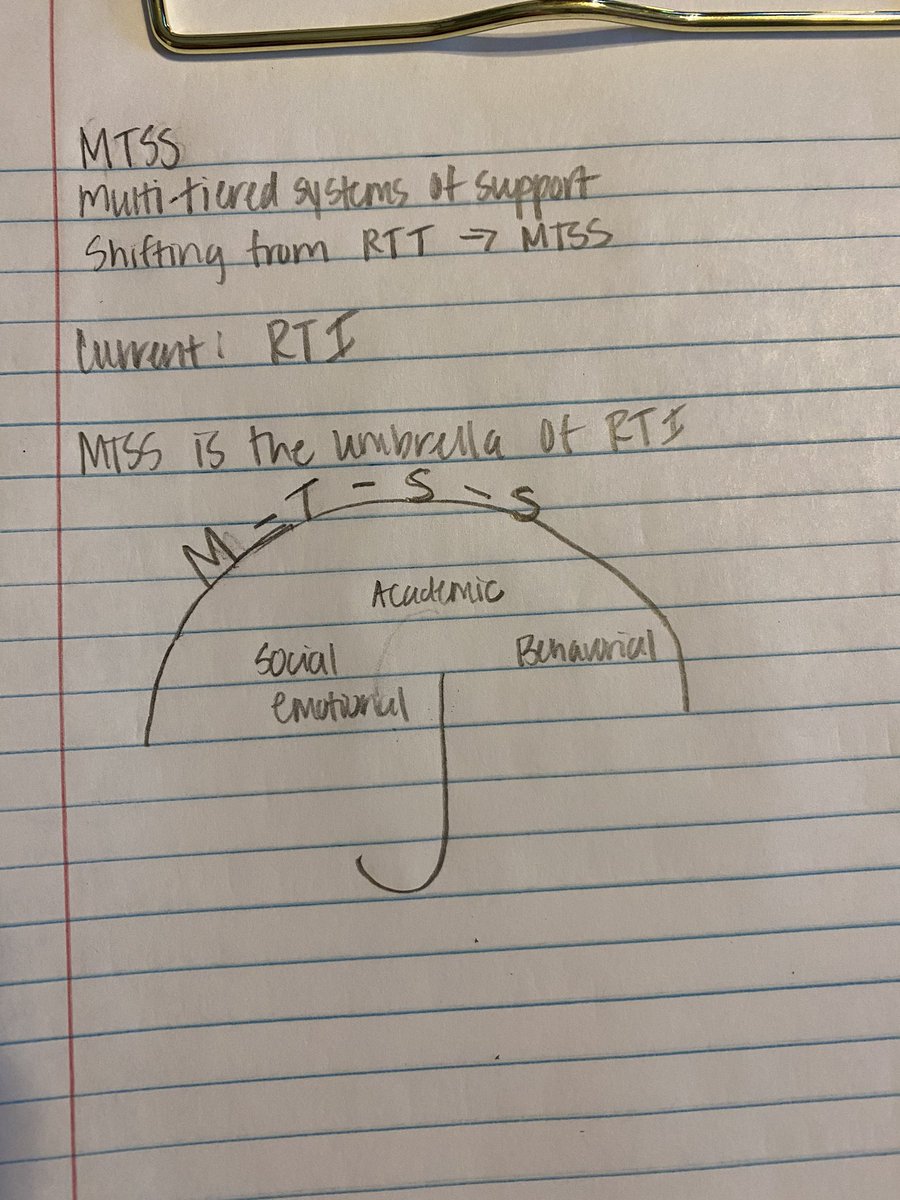 MTSS
Multi-tiered systems of support
Shifting from RTT → MTSS
Current: RTI
MTSS is the umbrella of RTI
M - T - S - S
Academic
Social
Behavorial
emotional